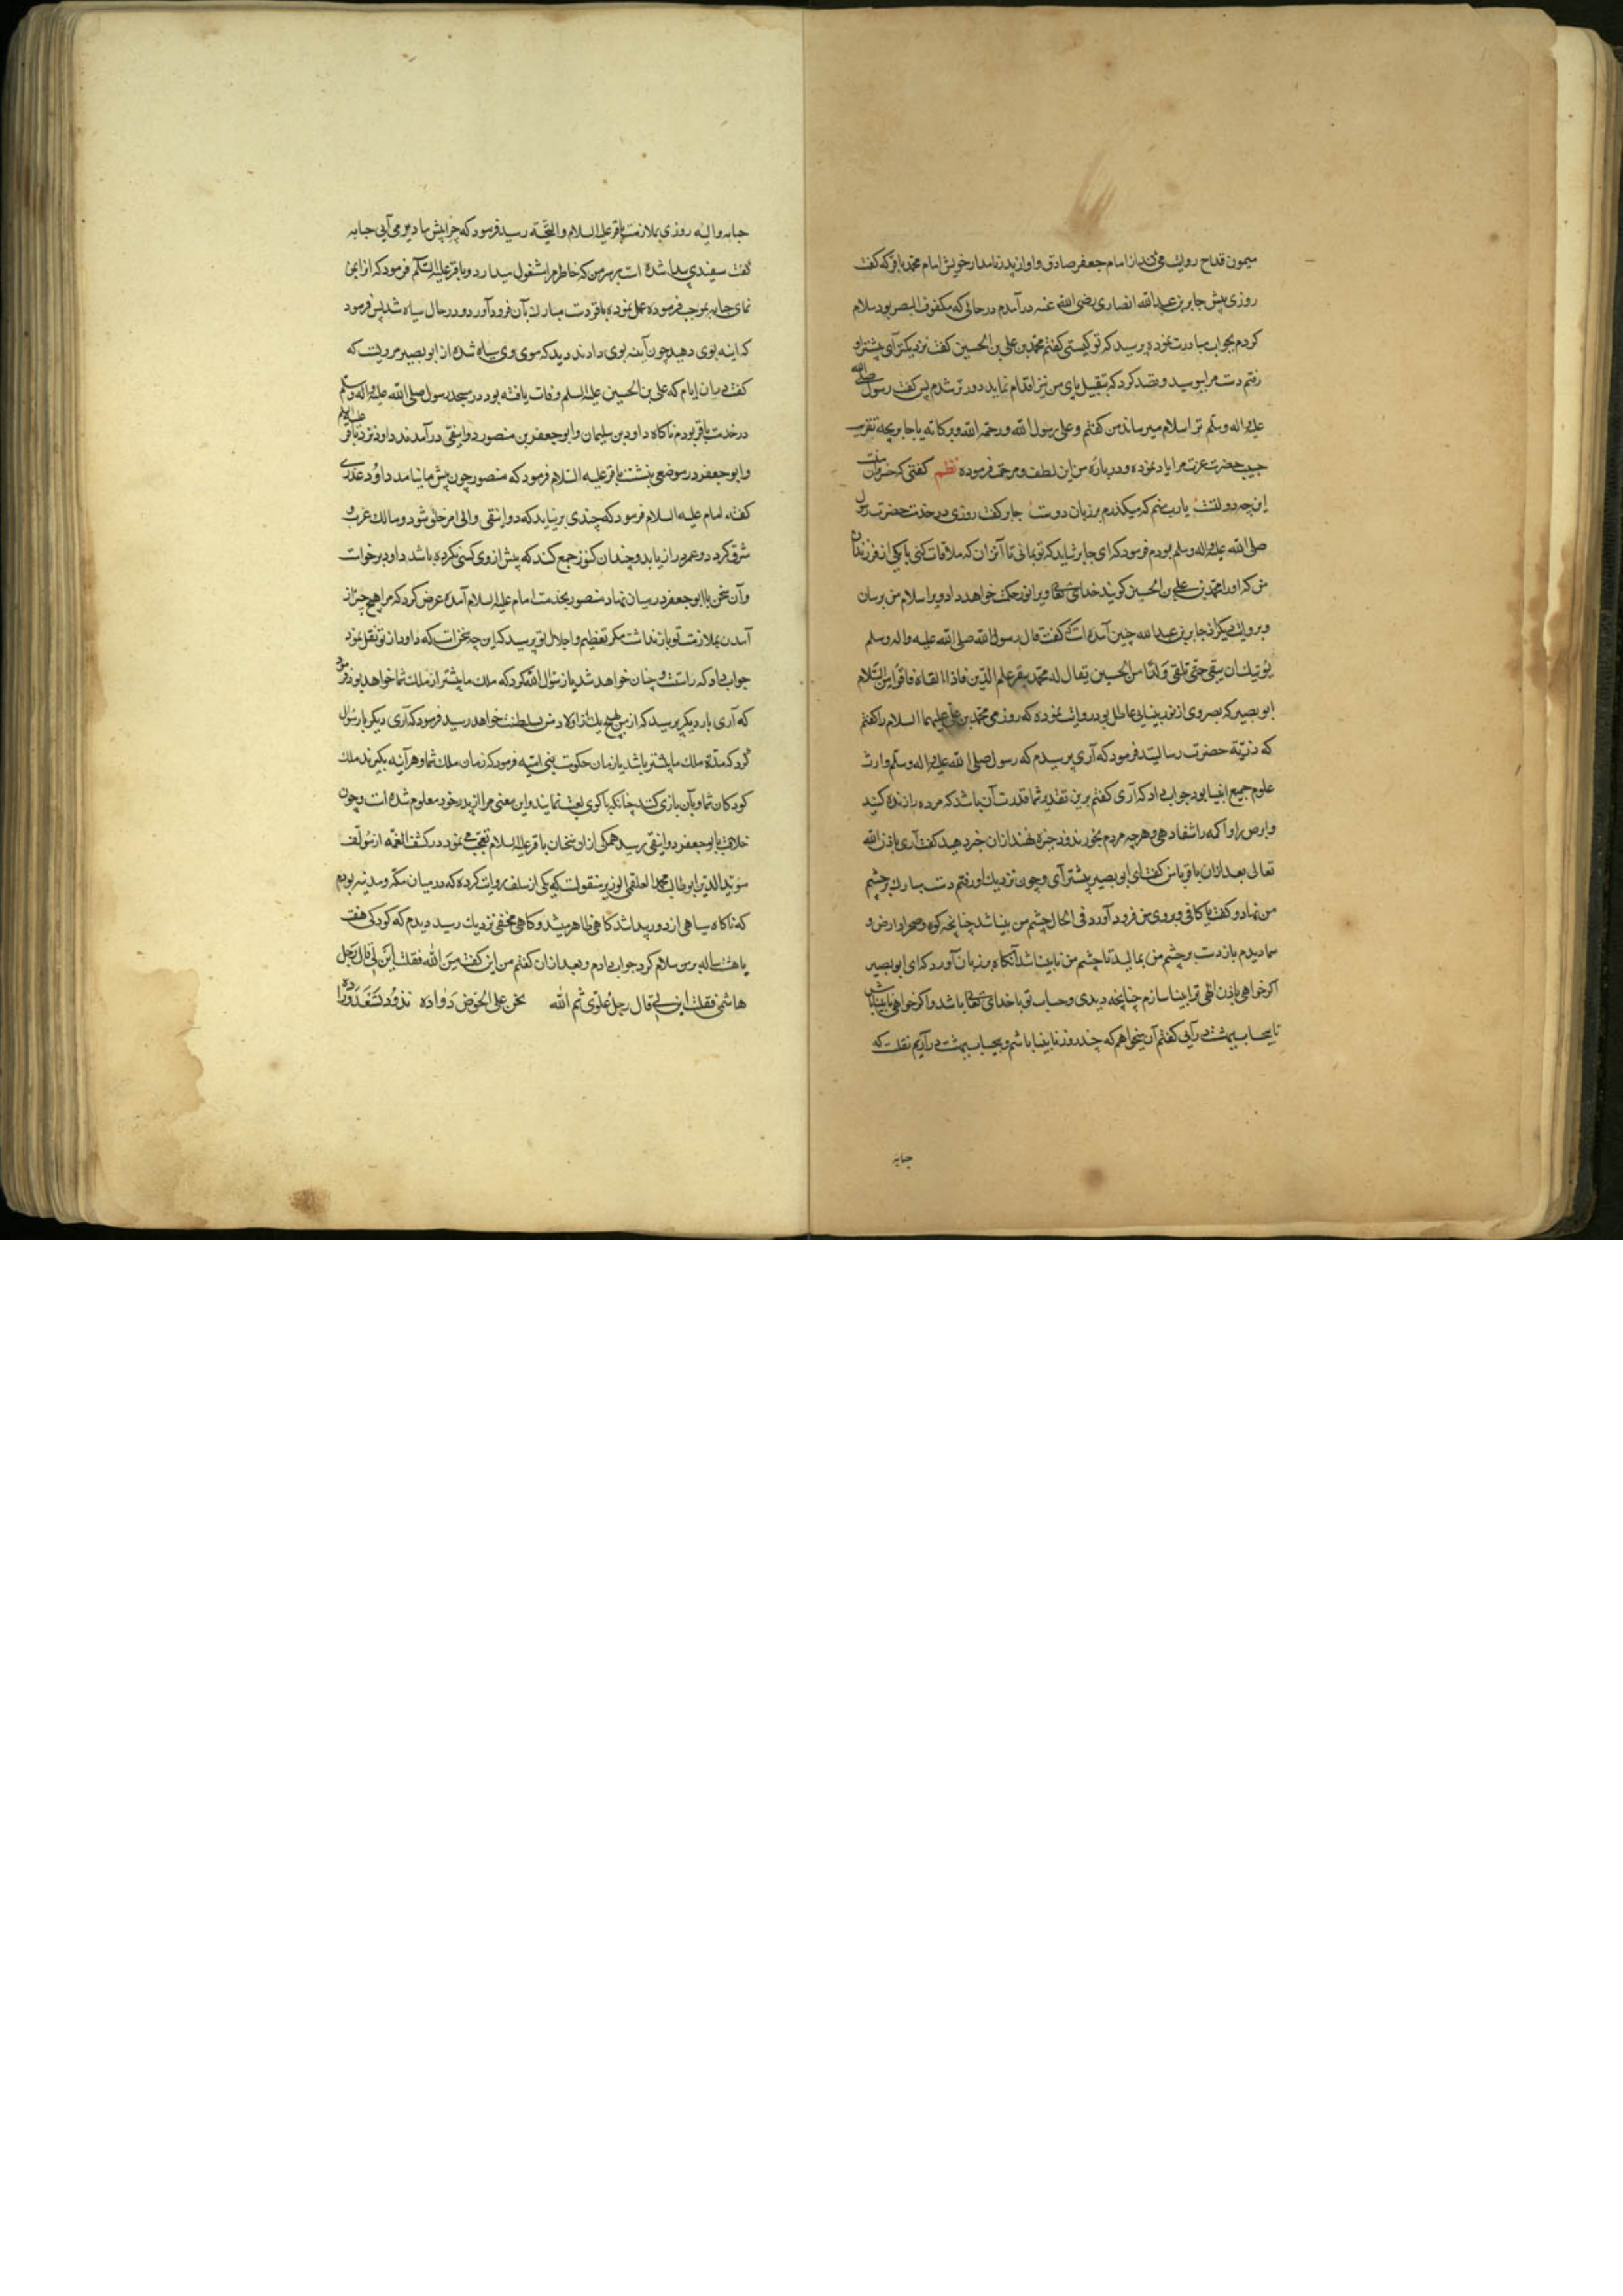 میمون قداح روایت می کند از امام جعفر صادق و او از پدر نامدار خویش امام محمد باقر که گفت
روزی پیش جابر بن عبدالله انصاری رضی الله عنه در آمدم در حالی که مکفوف البصر بود سلام
کردم بجواب مبادرت نموده پرسید که تو کیستی گفتم محمد بن علی بن الحسین گفت نزدیکتر آی پیشتر او
رفتم دست مرا ببوسید و قصد کرد که بتقبیل پای من نیز اقدام نماید دورتر شدم پس گفت رسول صلی الله
علیه و اله وسلم ترا سلام میرساند من گفتم و علی رسول الله و رحمة الله و برکاته یا جابر بچه تقریب
حبیب حضرت عزت مرا یاد نموده و در باره من این لطف و مرحمت فرموده نظم گفتی که
این چه دولتست یا رب منم که میگذرم بر زبان دوست جابر گفت روزی در خدمت حضرت رسول
صلی الله علیه و اله وسلم بودم فرمود که ای جابر شاید که تو بمانی تا آنزمان که ملاقات کنی با یکی از فرزندان
من که او را محمد بن علی بن الحسین گویند خدای تعالی ویرا نور حکمت خواهد داد ویرا سلام من برسان
و بروایت دیگر از جابر بن عبدالله چنین آمده است که گفت قال رسول الله صلی الله علیه واله وسلم
یوشک ان یبقی حتی تلقی ولدا من الحسین یقال له محمد یبقر علم الدین فاذا لقاه فاقرأ منی السلام
ابو بصیر که بصر وی از نور بینایی عاطل بود روایت نموده که روزی محمد بن علی علیهما السلام را گفتم
که ذریة حضرت رسالتید فرمود که آری پرسیدم که رسول صلی الله علیه واله وسلم وارث
علوم جمیع انبیا بود جواب داد که آری گفتم برین تقدیر شما قدرت آن باشد که مرده را زنده کنید
و ابرص را و اکمه را شفا دهی و هر چه مردم بخورند و ذخیره نهند از آن خبر دهید گفت آری باذن الله
تعالی بعد از آن باقر با من گفت ای ابو بصیر پیشتر آی و چون نزدیک او رفتم دست مبارک بر چشم
من نهاد و گفت و بروی من فرود آورد فی الحال چشم من بینا شد چنانچه کوه و صحرا و ارض و
سما دیدم باز دست بر چشم من بمالید تا چشم من نابینا شد آنگاه بر زبان آورد که ای ابو بصیر
اگر خواهی باذن الهی ترا بینا سازم چنانچه دیدی و حساب تو با خدای تعالی باشد و اگر خواهی نابینا باش
تا بیحساب ببهشت در آیی گفتم آن میخواهم که چند روز نابینا باشم و بیحساب ببهشت در آیم نقلست که
حبابه
حبابه والیه روزی بملازمت باقر علیه السلام والتحیة رسید فرمود که چرا پیش ما دیر می آیی حبابه
گفت سفیدی پیدا شده است بر سر من که خاطر مرا مشغول میدارد و باقر علیه السلام فرمود که
نمای حبابه بموجب فرموده عمل نموده باقر دست مبارک بآن فرود آورد و در حال سیاه شد پس فرمود
که اینه بوی دهید چون آینه بوی دادند دید که موی وی سیاه شده از ابو بصیر مرویست که
گفت در ان ایام که علی بن الحسین علیه السلم وفات یافته بود در مسجد رسول صلی الله علیه واله وسلم
در خدمت باقر بودم ناگاه داود بن سلیمان و ابو جعفر بن منصور دوانیقی در آمدند داود نزد باقر علیه السلام
و ابو جعفر در موضعی بنشست باقر علیه السلام فرمود که منصور چون پیش ما نیامد داود عذری
گفت امام علیه السلام فرمود که چندی بر نیاید که دوانیقی والی امر خلق شود و مالک غرب و
شرق گردد و عمر دراز یابد و چندان کنوز جمع کند که پیش از وی کسی نکرده باشد داود برخواست
و آن سخن با ابو جعفر در میان نهاد منصور بخدمت امام علیه السلام آمده عرض کرد که مرا هیچ چیز از
آمدن بملازمت تو باز نداشت مگر تعظیم و اجلال تو پرسید که این چه سخنست که داود از تو نقل نمود
جواب داد که راست و چنان خواهد شد باز سؤال کرد که ملک ما پیشتر از ملک شما خواهد بود فرمود
که آری بار دیگر پرسید که از من هیچ یک از اولاد من بسلطنت خواهد رسید فرمود که آری دیگر بار سؤال
کرد که مدة ملک ما بیشتر باشد یا زمان حکومت بنی امیه فرمود که زمان ملک شما و هر آینه بگیرند ملک
کودکان شما و بآن بازی کنند چنانکه با گوی لعب نمایند و این معنی مرا از پدر خود معلوم شده است و چون
خلافت بابو جعفر دوانیقی رسید همگی از آن سخنان باقر علیه السلام تعجب می نمود در کشف الغمه از مؤلف
مؤید الدین ابو طالب محمد العلقمی الوزیر منقولست که یکی از سلف روایت کرده که در میان مکه و مدینه بودم
که ناگاه سیاهی از دور پیدا شد گاهی ظاهر میشد و گاهی مخفی نزدیک رسید دیدم که کودکی هفت
یا هشت ساله بر من سلام کرد جواب دادم و بعد از آن گفتم من این گفت من الله فقلت ابن لی قال رجل
هاشمی فقلت ابن لی قال رجل علوی ثم الله نحن علی الحوض ذواده نذود